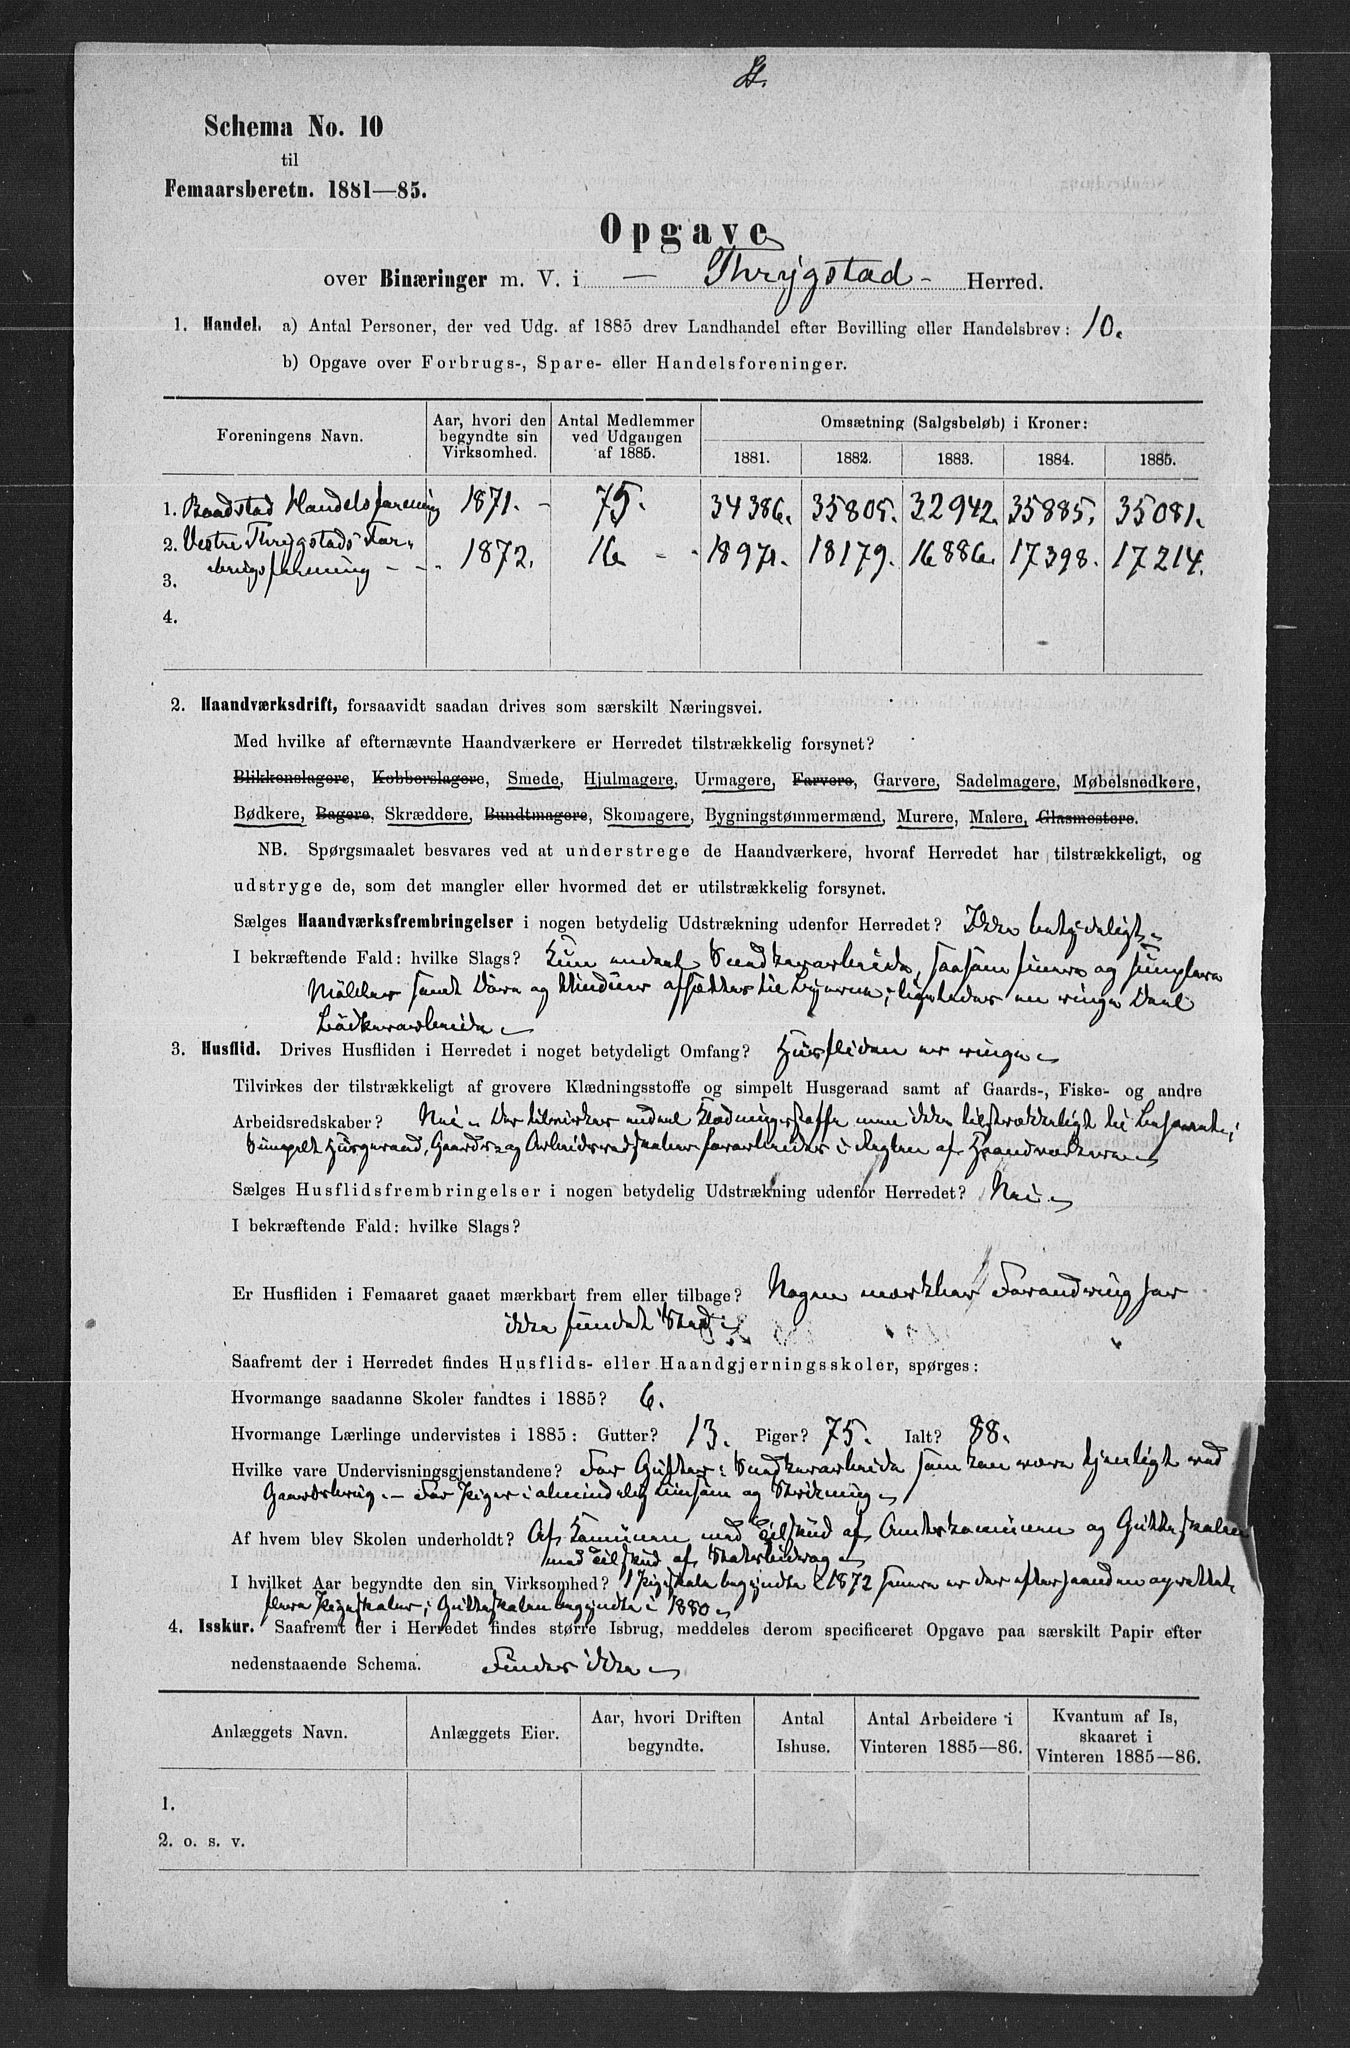 Schema No. 10
til
Femaarsberetn. 1881—85.
Opgave
over Binæringer m. V. i — Thrygstad - Herred.
1. Handel. a) Antal Personer, der ved Udg. af 1885 drev Landhandel efter Bevilling eller Handelsbrev: 10.
b) Opgave over Forbrugs-, Spare- eller Handelsforeninger.
Foreningens Navn. Aar, hvori den begyndte sin Virksomhed. Antal Medlemmer ved Udgangen af 1885. Omsætning (Salgsbeløb) i Kroner:
1881. 1882. 1883. 1884. 1885.
1. Baadstad Handelsforening 1871. - 75. 34386. 35805. 32942. 35885. 35081.
2. Vestre Thrygstads For-
brugsforening - - 1872. 16 - - 18971. 18179. 16886. 17398. 17214.
3.
4.
2. Haandværksdrift, forsaavidt saadan drives som særskilt Næringsvei.
Med hvilke af efternævnte Haandværkere er Herredet tilstrækkelig forsynet?
Blikkenslagere, Kobberslagere, Smede, Hjulmagere, Urmagere, Farvere, Garvere, Sadelmagere, Møbelsnedkere,
Bødkere, Bagere, Skræddere, Bundtmagere, Skomagere, Bygningstømmermænd, Murere, Malere, Glasmestere.
NB. Spørgsmaalet besvares ved at understrege de Haandværkere, hvoraf Herredet har tilstrækkeligt, og
udstryge de, som det mangler eller hvormed det er utilstrækkelig forsynet.
Sælges Haandværksfrembringelser i nogen betydelig Udstrækning udenfor Herredet? Ikke betydeligt.
I bekræftende Fald: hvilke Slags? Kun endeel Snedkerarbeide, saasom finere og simplere
Möbler samt Döre og Vinduer afsættes til Byerne; ligeledes en ringe Deel
Bödkerarbeide
3. Husflid. Drives Husfliden i Herredet i noget betydeligt Omfang? Husfliden er ringe
Tilvirkes der tilstrækkeligt af grovere Klædningsstoffe og simpelt Husgeraad samt af Gaards-, Fiske- og andre
Arbeidsredskaber? Nei. Der tilvirkes endeel Klædningsstoffe men ikke tilstrækkeligt til Behovet;
Simpelt Husgeraad, Gaards- og Arbeidsredskaber forarbeides i Reglen af Haandværkere
Sælges Husflidsfrembringelser i nogen betydelig Udstrækning udenfor Herredet? Nei.
I bekræftende Fald: hvilke Slags?
Er Husfliden i Femaaret gaaet mærkbart frem eller tilbage? Nogen mærkbar Forandring har
ikke fundet Sted
Saafremt der i Herredet findes Husflids- eller Haandgjerningsskoler, spørges:
Hvormange saadanne Skoler fandtes i 1885? 6.
Hvormange Lærlinge undervistes i 1885: Gutter? 13. Piger? 75. Ialt? 88.
Hvilke vare Undervisningsgjenstandene? For Gutter: Snedkerarbeide som kan være tjenligt ved
Gaardsbrug. — For Piger: almindelig Linsöm og Strikning
Af hvem blev Skolen underholdt? Af Kommunen med Tilskud af Amtskommunen og Gutteskolen
med Tilskud af Statsbidrag
I hvilket Aar begyndte den sin Virksomhed? 1 Pigeskole begyndte i 1872 senere er der efterhaanden oprettet
flere Pigeskoler; Gutteskolen begyndte i 1880
4. Isskur. Saafremt der i Herredet findes større Isbrug, meddeles derom specificeret Opgave paa særskilt Papir efter
nedenstaaende Schema. Findes ikke
Anlæggets Navn. Anlæggets Eier. Aar, hvori Driften begyndte. Antal Ishuse. Antal Arbeidere i Vinteren 1885—86. Kvantum af Is, skaaret i Vinteren 1885—86.
1.
2. o. s. v.